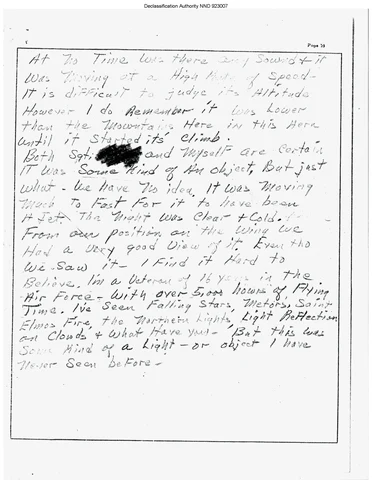 Declassification Authority NND 923007
Page 10
At No Time Was there Any Sound + it
Was Moving at a High Rate of Speed -
It is difficult to judge its' Altitude
However I do Remember it was Lower
than the Mountains Here in this Area
until it Started its' Climb.
Both Sgt. and Myself are certain
IT Was Some Kind of An object, But just
What - We have No idea. It was Moving
Much To Fast For it to have been
A Jet. The Night was Clear + Cold.
From our position on the Wing We
Had a very good View of it. Even tho
We Saw it - I Find it Hard to
Believe. Im a Veteran of 16 years in the
Air Force - With over 5,000 hours of Flying
Time. I've Seen Falling Stars, Metors, Saint
Elmos Fire, the Northern Lights, Light Reflection
on Clouds + What Have you - But this was
Some Kind of a Light - or object I have
Never Seen before -